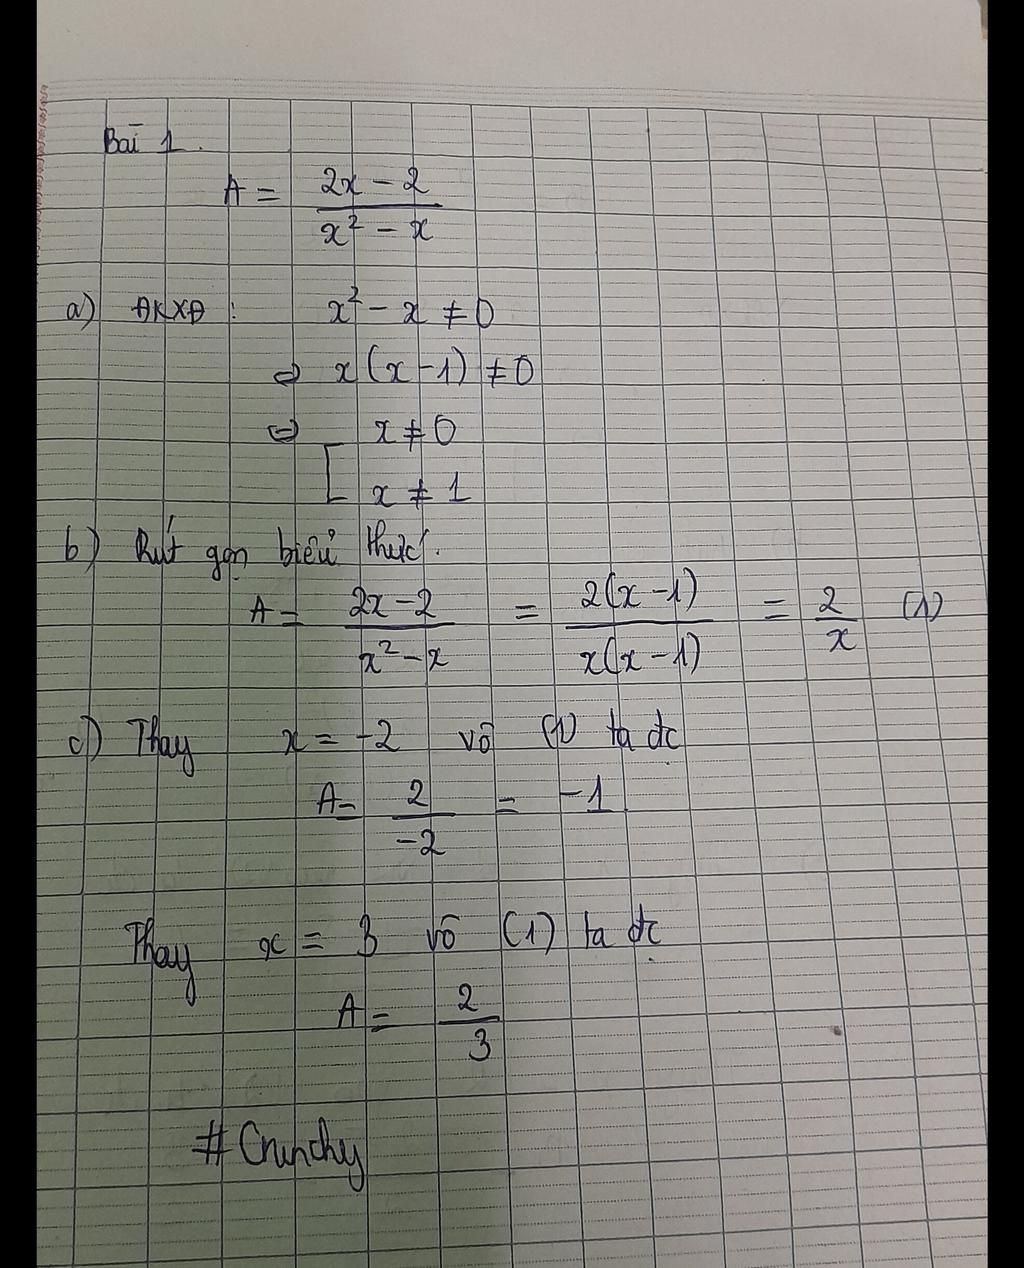 Bài 1.
A = (2x - 2)/(x² - x)
a) ĐKXĐ : x² - x ≠ 0
⇒ x(x-1) ≠ 0
⇔ [ x ≠ 0
x ≠ 1
b) Rút gọn biểu thức.
A = (2x-2)/(x²-x) = 2(x-1)/x(x-1) = 2/x (1)
c) Thay x = -2 vô (1) ta đc
A = 2/-2 = -1
Thay x = 3 vô (1) ta đc
A = 2/3
#Crunchy